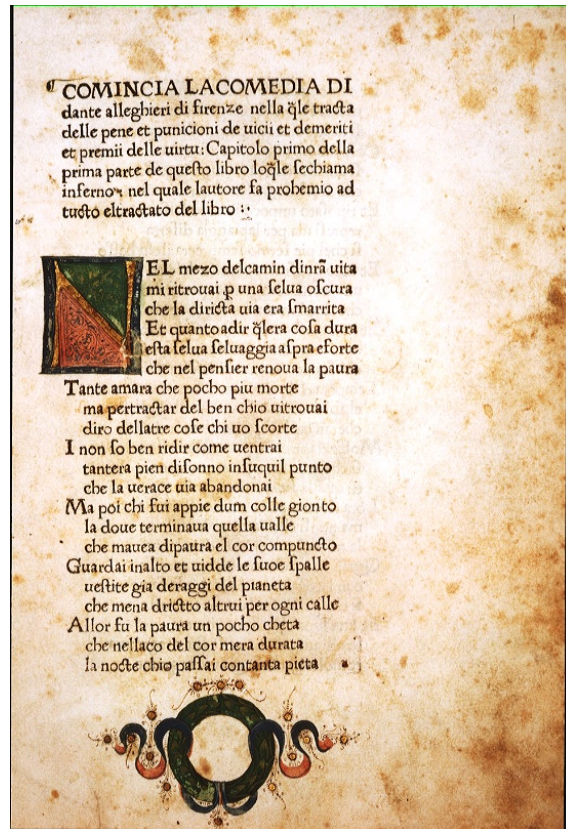 ¶ COMINCIA LACOMEDIA DI
dante alleghieri di firenze nella q̃le tracta
delle pene et punicioni de uicii et demeriti
et premii delle uirtu: Capitolo primo della
prima parte de queſto libro loq̃le ſechiama
inferno: nel quale lautore fa prohemio ad
tucto eltractato del libro :·
NEL mezo delcamin dinr̃a uita
mi ritrouai ꝑ una ſelua oſcura
che la diricta uia era ſmarrita
Et quanto adir q̃lera coſa dura
eſta ſelua ſeluaggia aſpra eforte
che nel penſier renoua la paura
Tante amara che pocho piu morte
ma pertractar del ben chio uitrouai
diro dellatre coſe chi uo ſcorte
I non ſo ben ridir come uentrai
tantera pien diſonno inſuquil punto
che la uerace uia abandonai
Ma poi chi fui appie dum colle gionto
la doue terminaua quella ualle
che mauea dipaura el cor compuncto
Guardai inalto et uidde le ſuoe ſpalle
ueſtite gia deraggi del pianeta
che mena drictto altrui per ogni calle
Allor fu la paura un pocho cheta
che nellaco del cor mera durata
la nocte chio paſſai contanta pieta